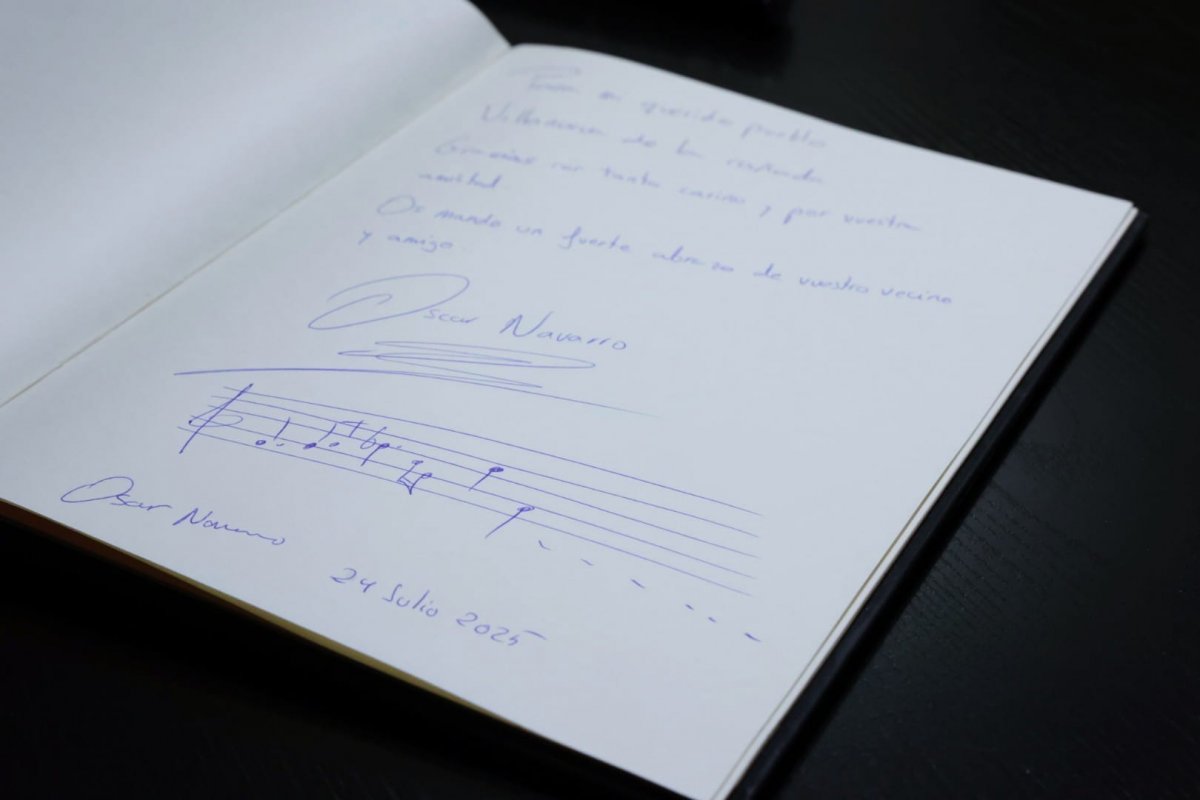 Para mi querido pueblo
de la
Gracias por tanto cariño y por vuestra
amistad.
Os mando un fuerte abrazo de vuestro vecino
y amigo.
Oscar Navarro
Oscar Navarro
24 Julio 2025